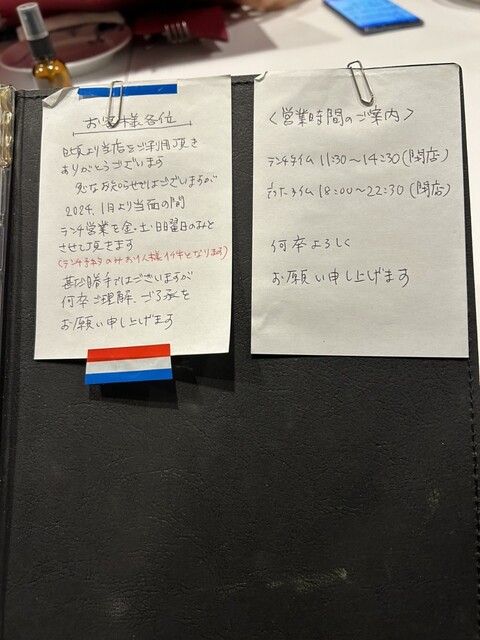 お客様各位
日頃より当店をご利用頂き
ありがとうございます
急なお知らせではございますが
2024.1月より当面の間
ランチ営業を金・土・日曜日のみと
させて頂きます
(ランチ予約のみお1人様1付となります)
甚だ勝手ではございますが
何卒ご理解、ご了承を
お願い申し上げます
〈営業時間のご案内〉
ランチタイム 11:30〜14:30(閉店)
ディナータイム 18:00〜22:30(閉店)
何卒よろしく
お願い申し上げます